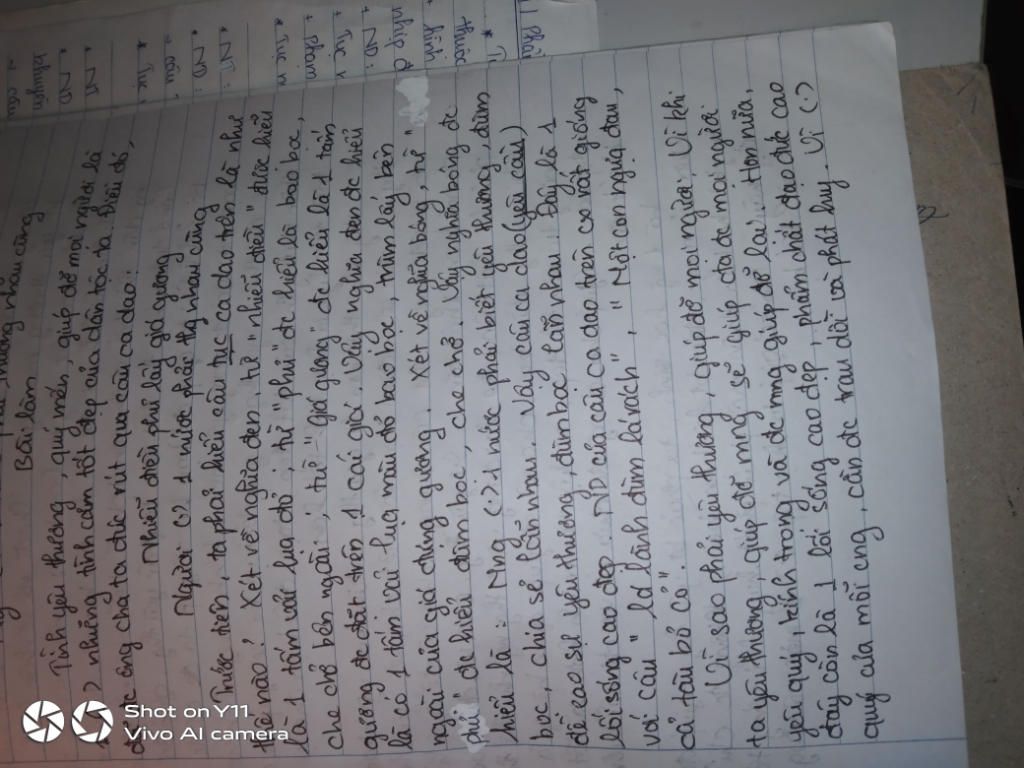 thương nhau cùng
Bài làm
Tình yêu thương, quý mến, giúp đỡ mọi người là
1 (.) những tình cảm tốt đẹp của dân tộc ta. Điều đó,
đc ông cha ta đúc rút qua câu ca dao:
Nhiễu điều phủ lấy giá gương
Người (.) 1 nước phải thg nhau cùng
Trước tiên, ta phải hiểu câu tục ca dao trên là như
thế nào? Xét về nghĩa đen, từ "nhiễu điều" được hiểu
là 1 tấm vải lụa đỏ, từ "phủ" đc hiểu là bao bọc,
che chở bên ngoài, từ "giá gương" đc hiểu là 1 tấm
gương đc đặt trên 1 cái giá. Vậy nghĩa đen đc hiểu
là có 1 tấm vải lụa màu đỏ bao bọc, trùm lấy bên
ngoài của giá đựng gương. Xét về nghĩa bóng, từ "
" đc hiểu đùm bọc, che chở. Vậy nghĩa bóng đc
hiểu là: Mng (.) 1 nước phải biết yêu thương, đùm
bọc, chia sẻ lẫn nhau. Vậy câu ca dao (yêu cầu)
đề cao sự yêu thương, đùm bọc lẫn nhau. Đây là 1
lối sống cao đẹp. ND của câu ca dao trên có rất giống
với câu "lá lành đùm lá rách", "Một con ngựa đau,
cả tàu bỏ cỏ".
Vì sao phải yêu thương, giúp đỡ mọi người? Vì khi
ta yêu thương, giúp đỡ mng sẽ giúp ta đc mọi người
yêu quý, kính trọng và đc mng giúp đỡ lại. Hơn nữa,
đây còn là 1 lối sống cao đẹp, phẩm chất đạo đức cao
quý của mỗi cng, cần đc trau dồi và phát huy. Vì (.)
Shot on Y11
Vivo AI camera